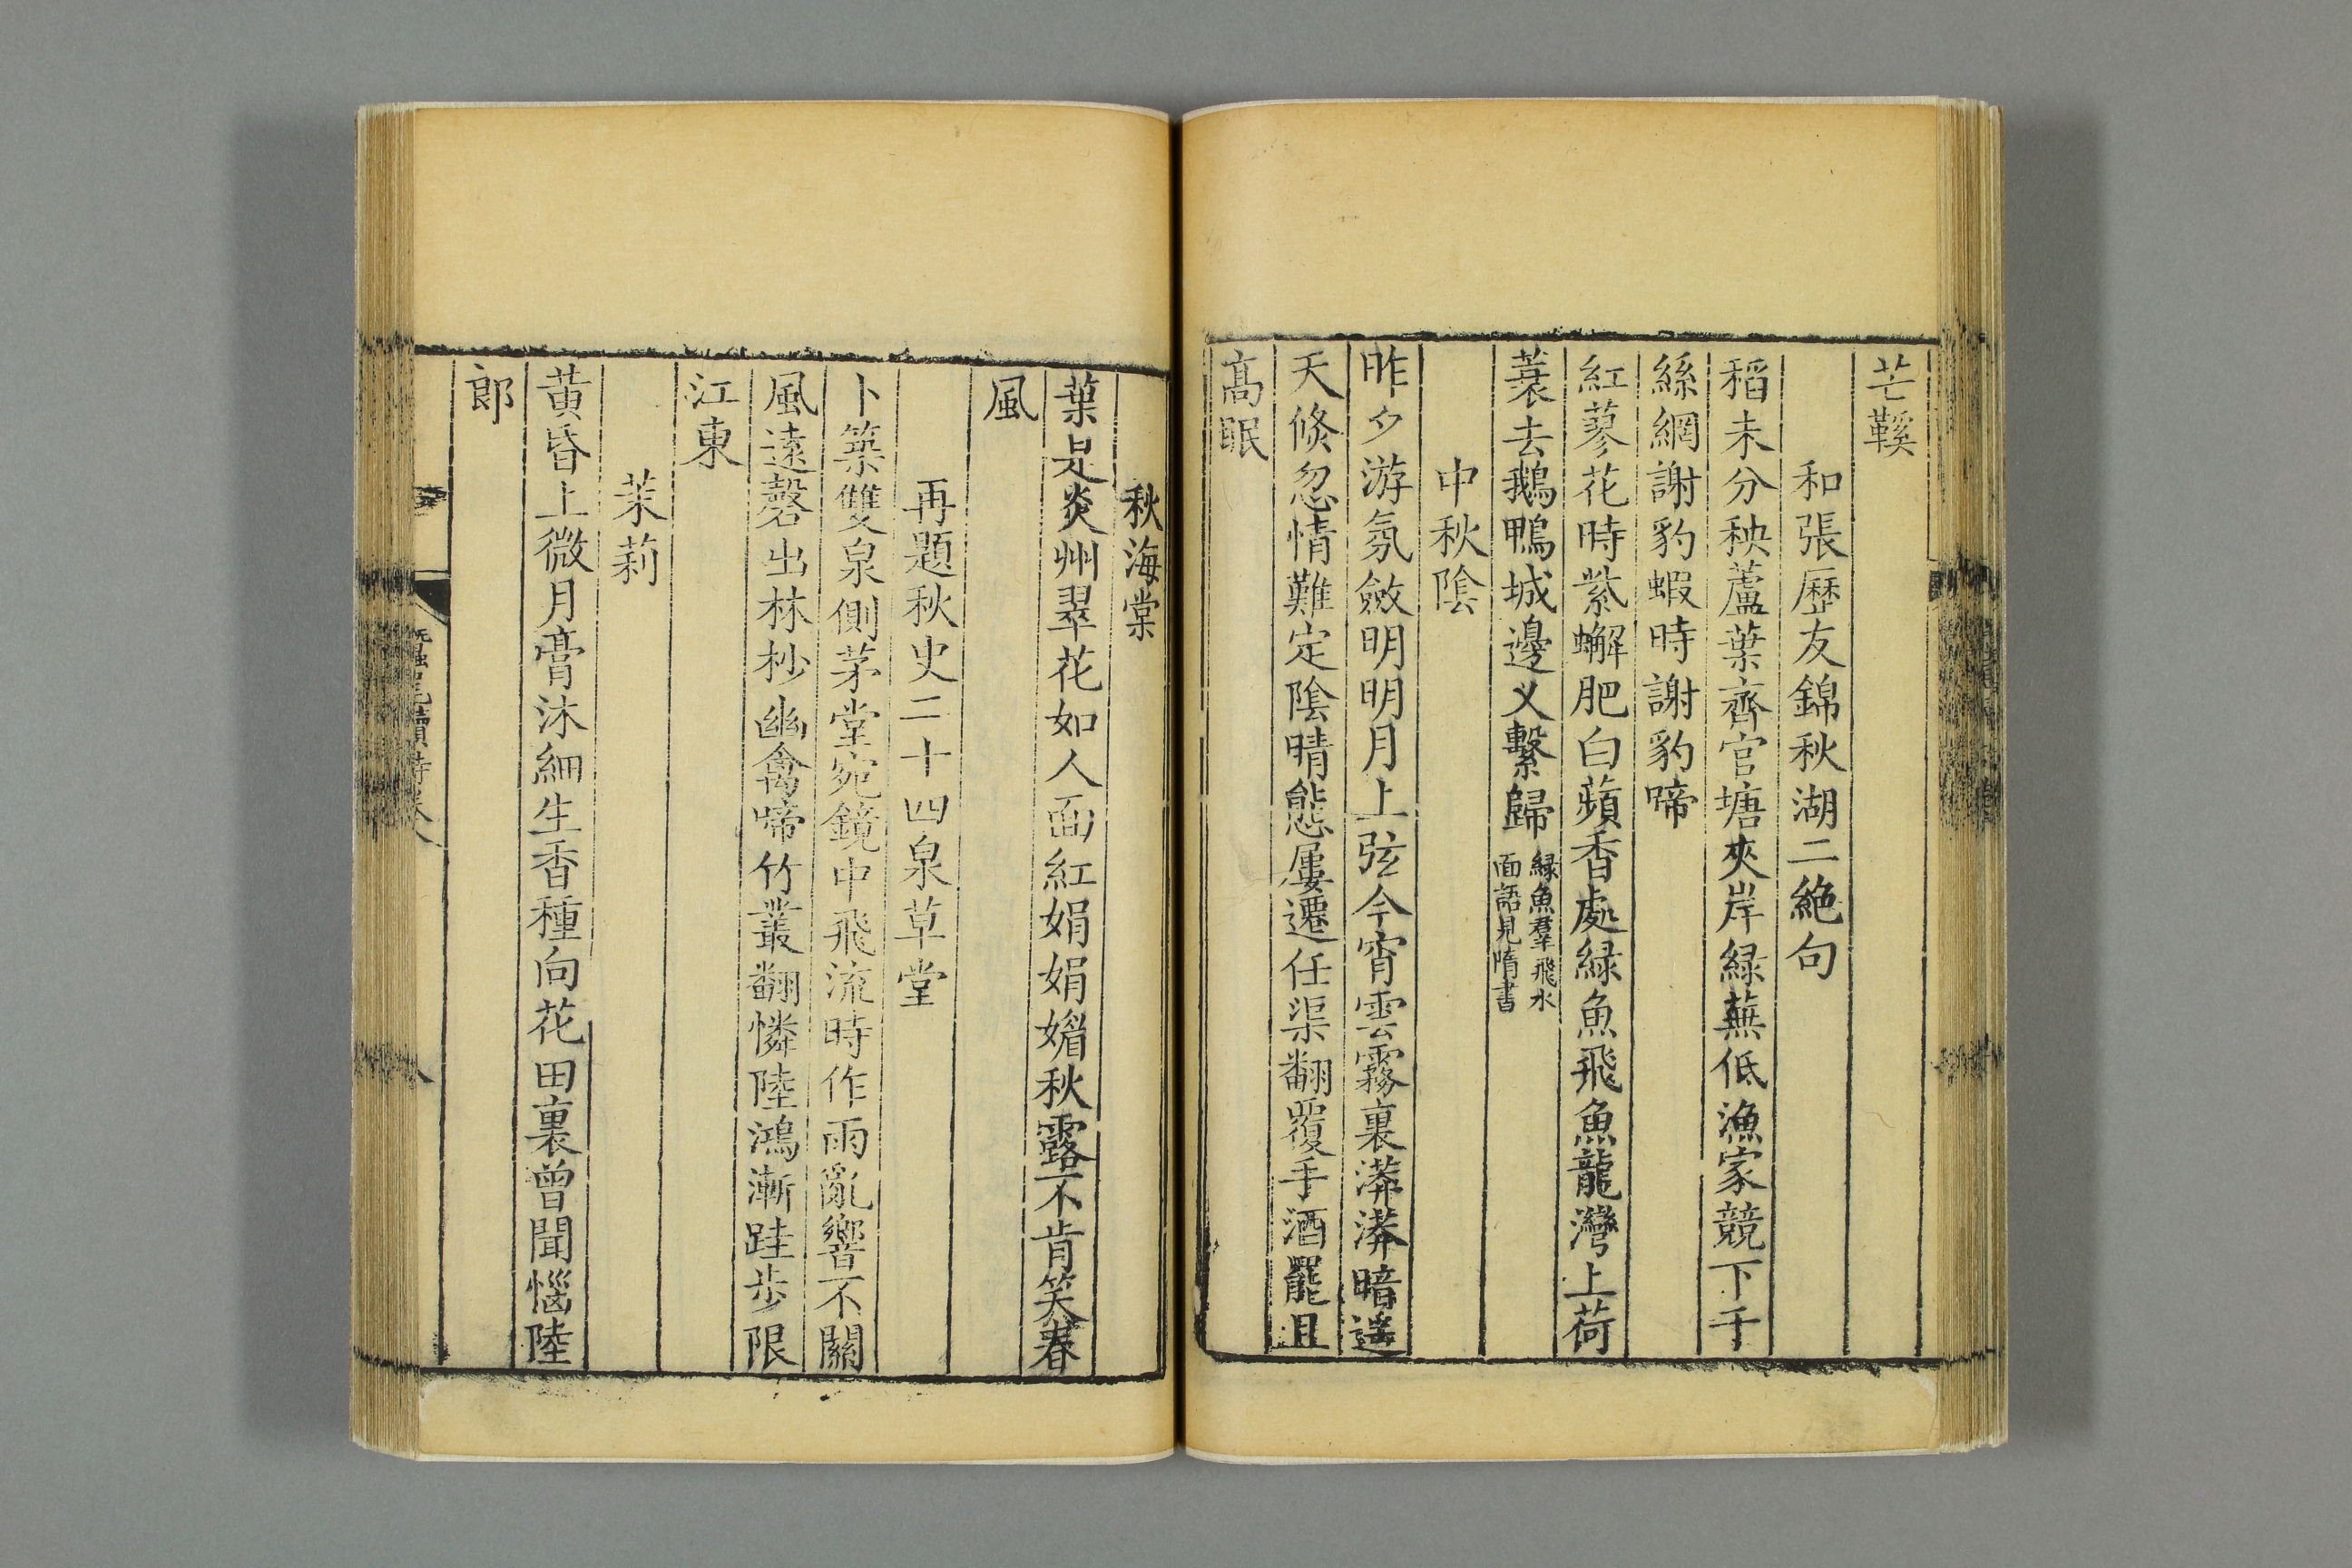 芒鞵
和張歷友錦秋湖二絶句
稻未分秧蘆葉齊官塘夾岸緑蕪低漁家競下手
絲網謝豹蝦時謝豹啼
紅蓼花時紫蠏肥白蘋香處緑魚飛魚龍灣上荷
蓑去鵝鴨城邊乂繫歸
緑魚羣飛水
面語見隋書
中秋陰
昨夕游氛斂明明月上弦今宵雲霧裏漭漭暗遥
天倏忽情難定陰晴態屢遷任渠翻覆手酒罷且
髙眠
秋海棠
葉是炎州翠花如人面紅娟娟媚秋露不肯笑春
風
再題秋史二十四泉草堂
卜築雙泉側茅堂宛鏡中飛流時作雨亂響不關
風遠磬出林杪幽禽啼竹叢翻憐陸鴻漸跬步限
江東
茉莉
黄昏上微月膏沐細生香種向花田裏曾聞惱陸
郎
八